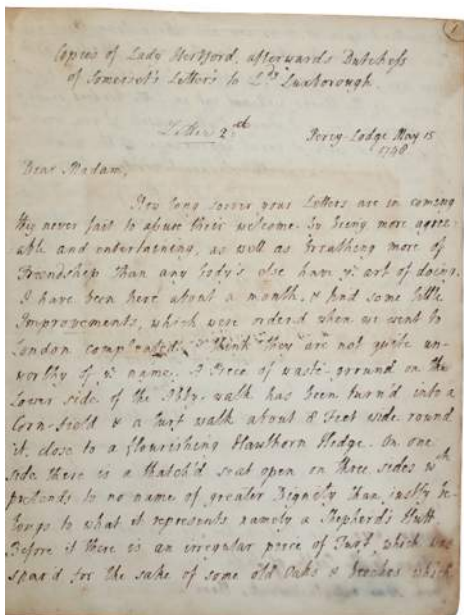 1
Copies of Lady Hertford, afterwards Dutchess
of Somerset's Letters to Ly Luxborough.
Letter 2nd
Percy-Lodge May 15
1748
Dear Madam,
How long soever your Letters are in coming
they never fail to assure their welcome by being more agree-
able and entertaining, as well as breathing more of
Freendship than any body's else have ye art of doing.
I have been here about a month, & find some little
Improvements, which were orderd when we went to
London compleated. I think they are not quite un-
worthy of ye name. A Piece of waste-ground on the
Lower side of the Abby-walk has been turn'd into a
Corn-field & a turf walk about 8 Feet wide round
it, close to a flourishing Hawthorn Hedge. On one
side there is a thatch'd seat open on three sides wch
pretends to no name of greater Dignity than justly be-
longs to what it represents namely a Shepherd's Hutt
Before it there is an irregular piece of Turf which was
spar'd for the sake of some old Oaks & beeches which